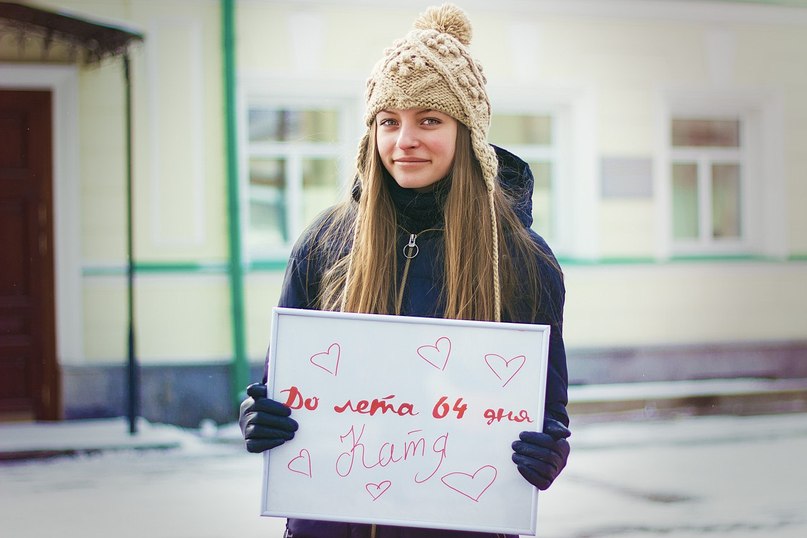 До лета 64 дня
Катя